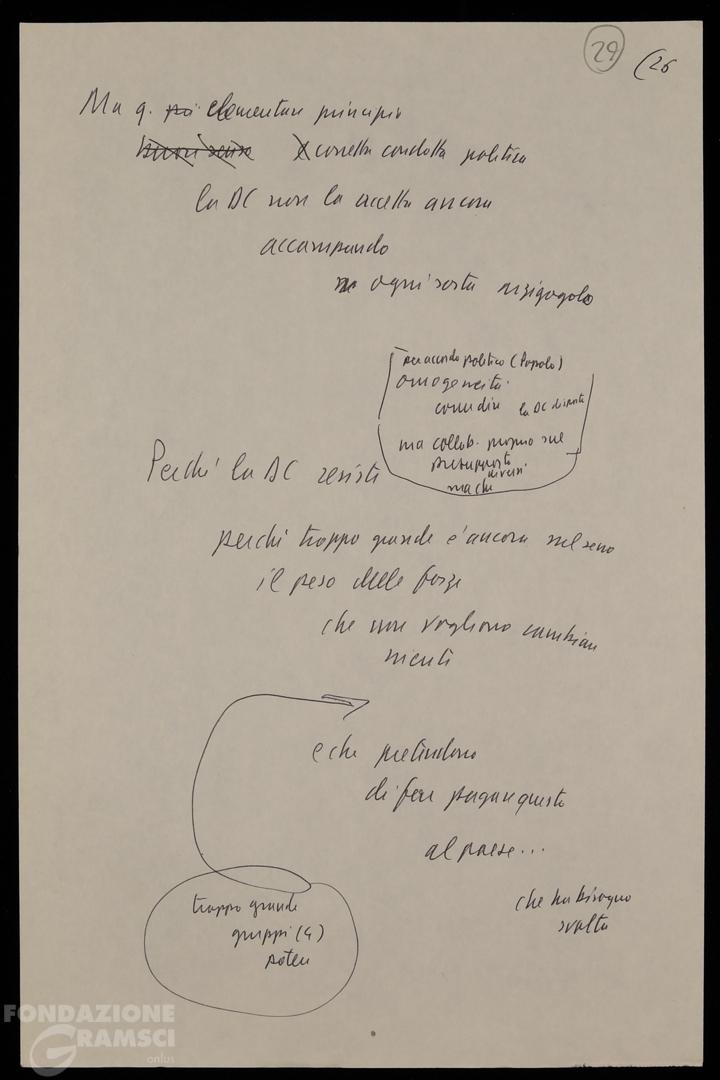 29 (26
Ma q. più elementare principio
buon senso X corretta condotta politica
la DC non la accetta ancora
accampando
ogni sorta arzigogolo
per accordo politico (Popolo)
omogeneità
come dire la DC disposta
ma collab. proprio sul
presupposto
diversi
ma che
Perché la DC resiste
perché troppo grande è ancora nel seno
il peso delle forze
che non vogliono cambiare
niente
e che pretendono
di far pagare questo
al paese...
che ha bisogno
svolta
troppo grande
gruppi (4)
potere
FONDAZIONE
GRAMSCI
onlus